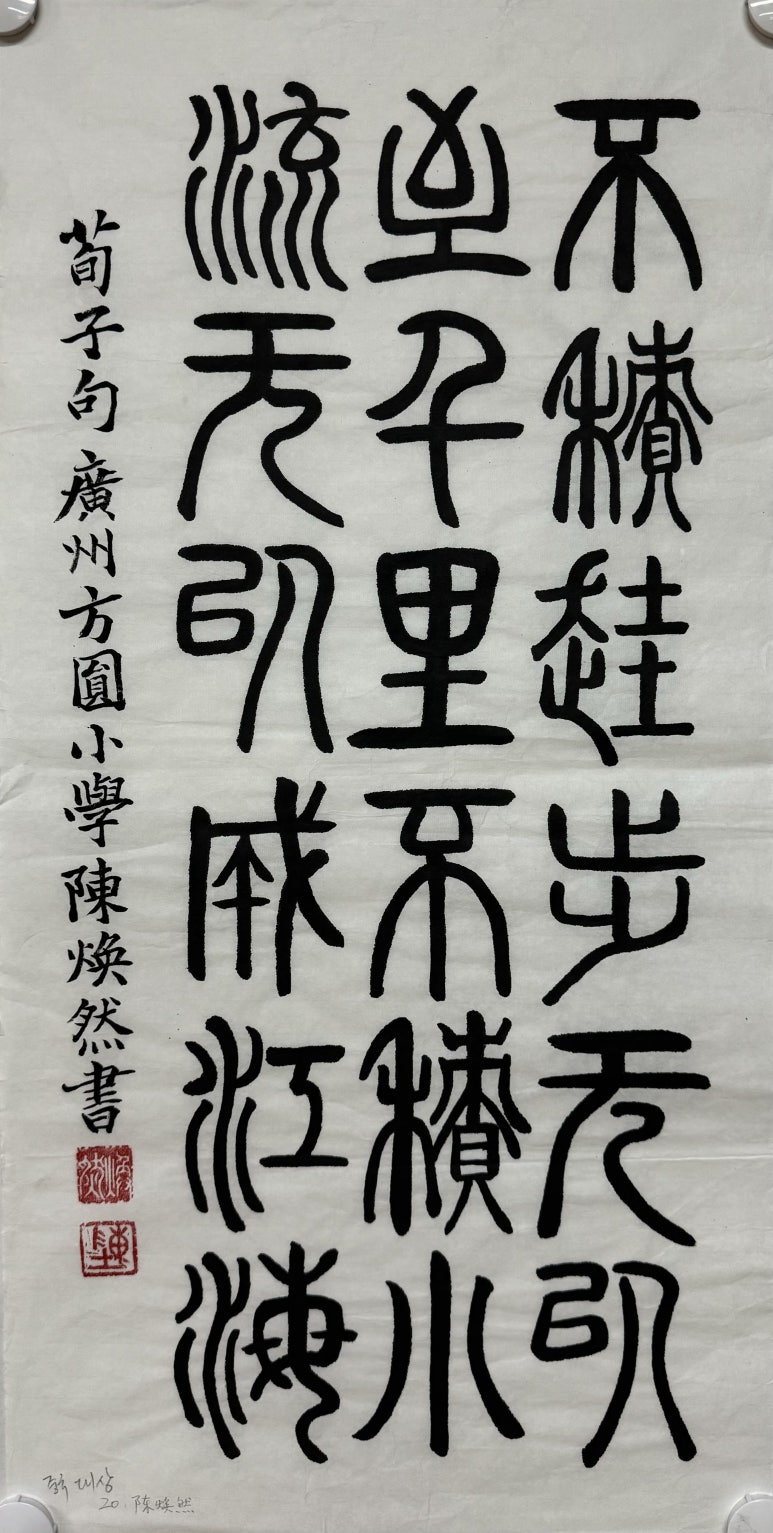 不積跬步无以
至千里不積小
流无以成江海
荀子句廣州方圓小學陳焕然書
20. 陈焕然